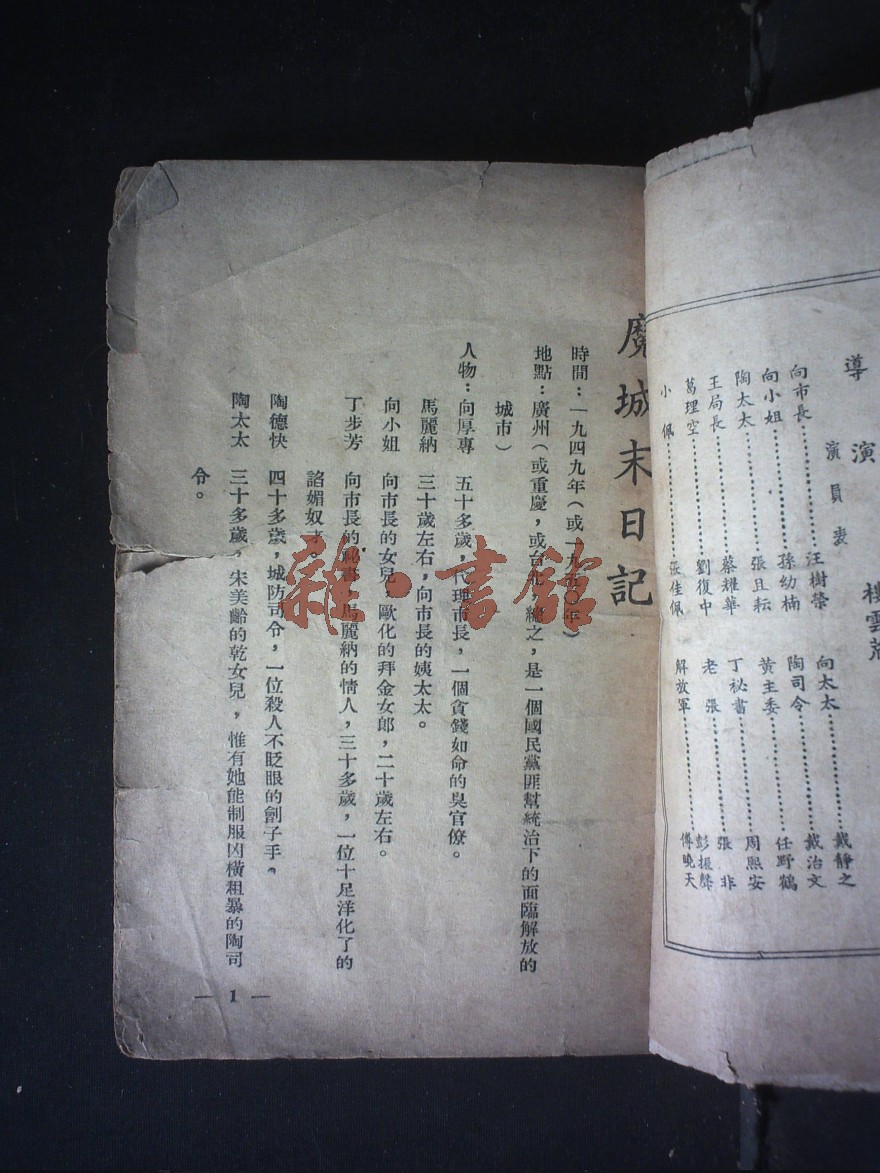 導演 樓雲
演員表
向市長……………汪樹榮
向小姐……………孫幼楠
陶太太……………張且耘
王局長……………蔡耀華
葛理空……………劉復中
小佩……………張佳佩
向太太……………戴靜之
陶司令……………戴治文
黃主委……………任野鶴
丁祕書……………周熙安
老張……………張非
彭振聲
解放軍……………傅曉天
魔城末日記
時間：一九四九年（或一九五〇年）
地點：廣州（或重慶，或台北，總之，是一個國民黨匪幫統治下的面臨解放的
城市）
人物：向厚專　五十多歲，代理市長，一個貪錢如命的臭官僚。
馬麗納　三十歲左右，向市長的姨太太。
向小姐　向市長的女兒，歐化的拜金女郎，二十歲左右。
丁步芳　向市長的祕書，馬麗納的情人，三十多歲，一位十足洋化了的
諂媚奴才。
陶德快　四十多歲，城防司令，一位殺人不眨眼的劊子手。
陶太太　三十多歲，宋美齡的乾女兒，惟有她能制服凶橫粗暴的陶司
令。
— 1 —
雜·書館